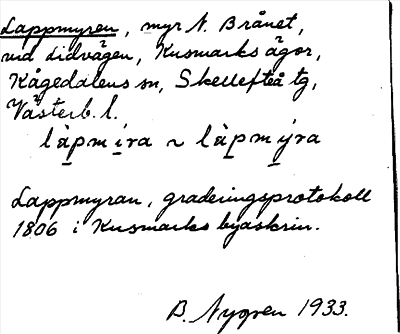 Lappmyren, myr N. Brånet,
vid Lidvägen, Kusmarks ägor,
Kågedalens sn, Skellefteå tg,
Västerb. l.
làpmira ~ làpmýra
Lappmyran, graderingsprotokoll
1806 i Kusmarks byaskrin.
B. Nygren 1933.